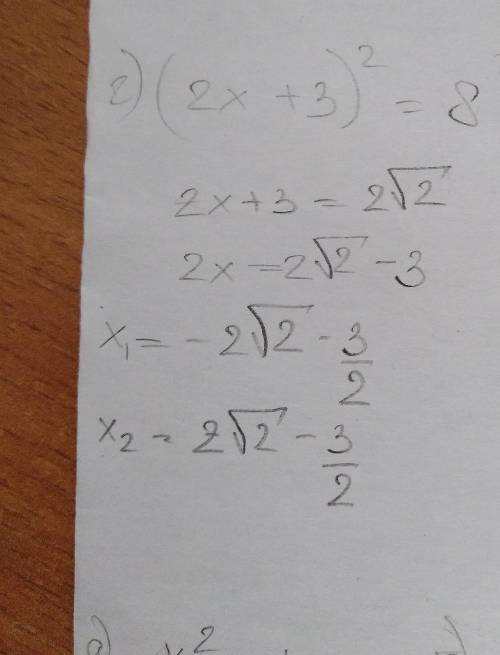 г) (2x + 3)² = 8
2x + 3 = 2√2
2x = 2√2 - 3
x₁ = - 2√2 - 3/2
x₂ = 2√2 - 3/2